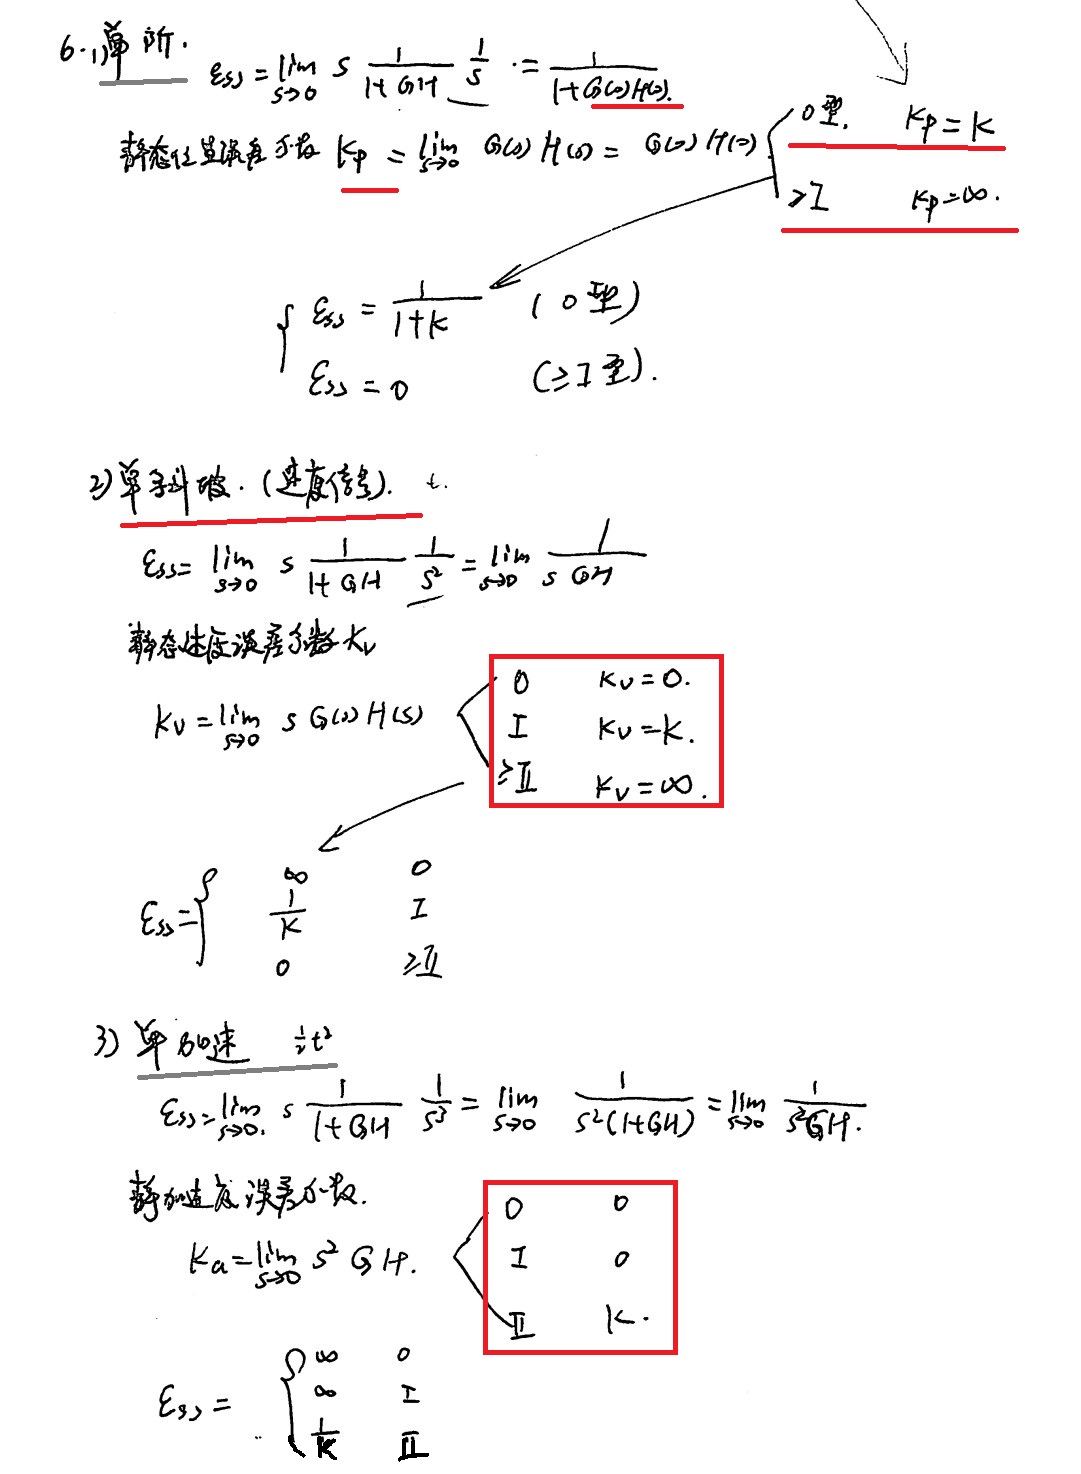 6. 1) 单阶.
ε_ss = lim_{s→0} s 1/(1+GH) 1/s = 1/(1+G(0)H(0)).
静态位置误差系数 Kp = lim_{s→0} G(s)H(s) = G(0)H(0)
0型. Kp=K
≥I Kp=∞.
ε_ss = 1/(1+K) (0型)
ε_ss = 0 (≥I型).
2) 单斜坡. (速度信号). t.
ε_ss = lim_{s→0} s 1/(1+GH) 1/s² = lim_{s→0} 1/(s GH)
静态速度误差系数 Kv
Kv = lim_{s→0} s G(s)H(s)
0 Kv=0.
I Kv=K.
≥II Kv=∞.
ε_ss = {
∞ 0
1/K I
0 ≥II
3) 单加速 ½t²
ε_ss = lim_{s→0} s 1/(1+GH) 1/s³ = lim_{s→0} 1/(s²(1+GH)) = lim_{s→0} 1/(s²GH).
静加速度误差系数.
Ka = lim_{s→0} s² GH.
0 0
I 0
II K.
ε_ss = {
∞ 0
∞ I
1/K II